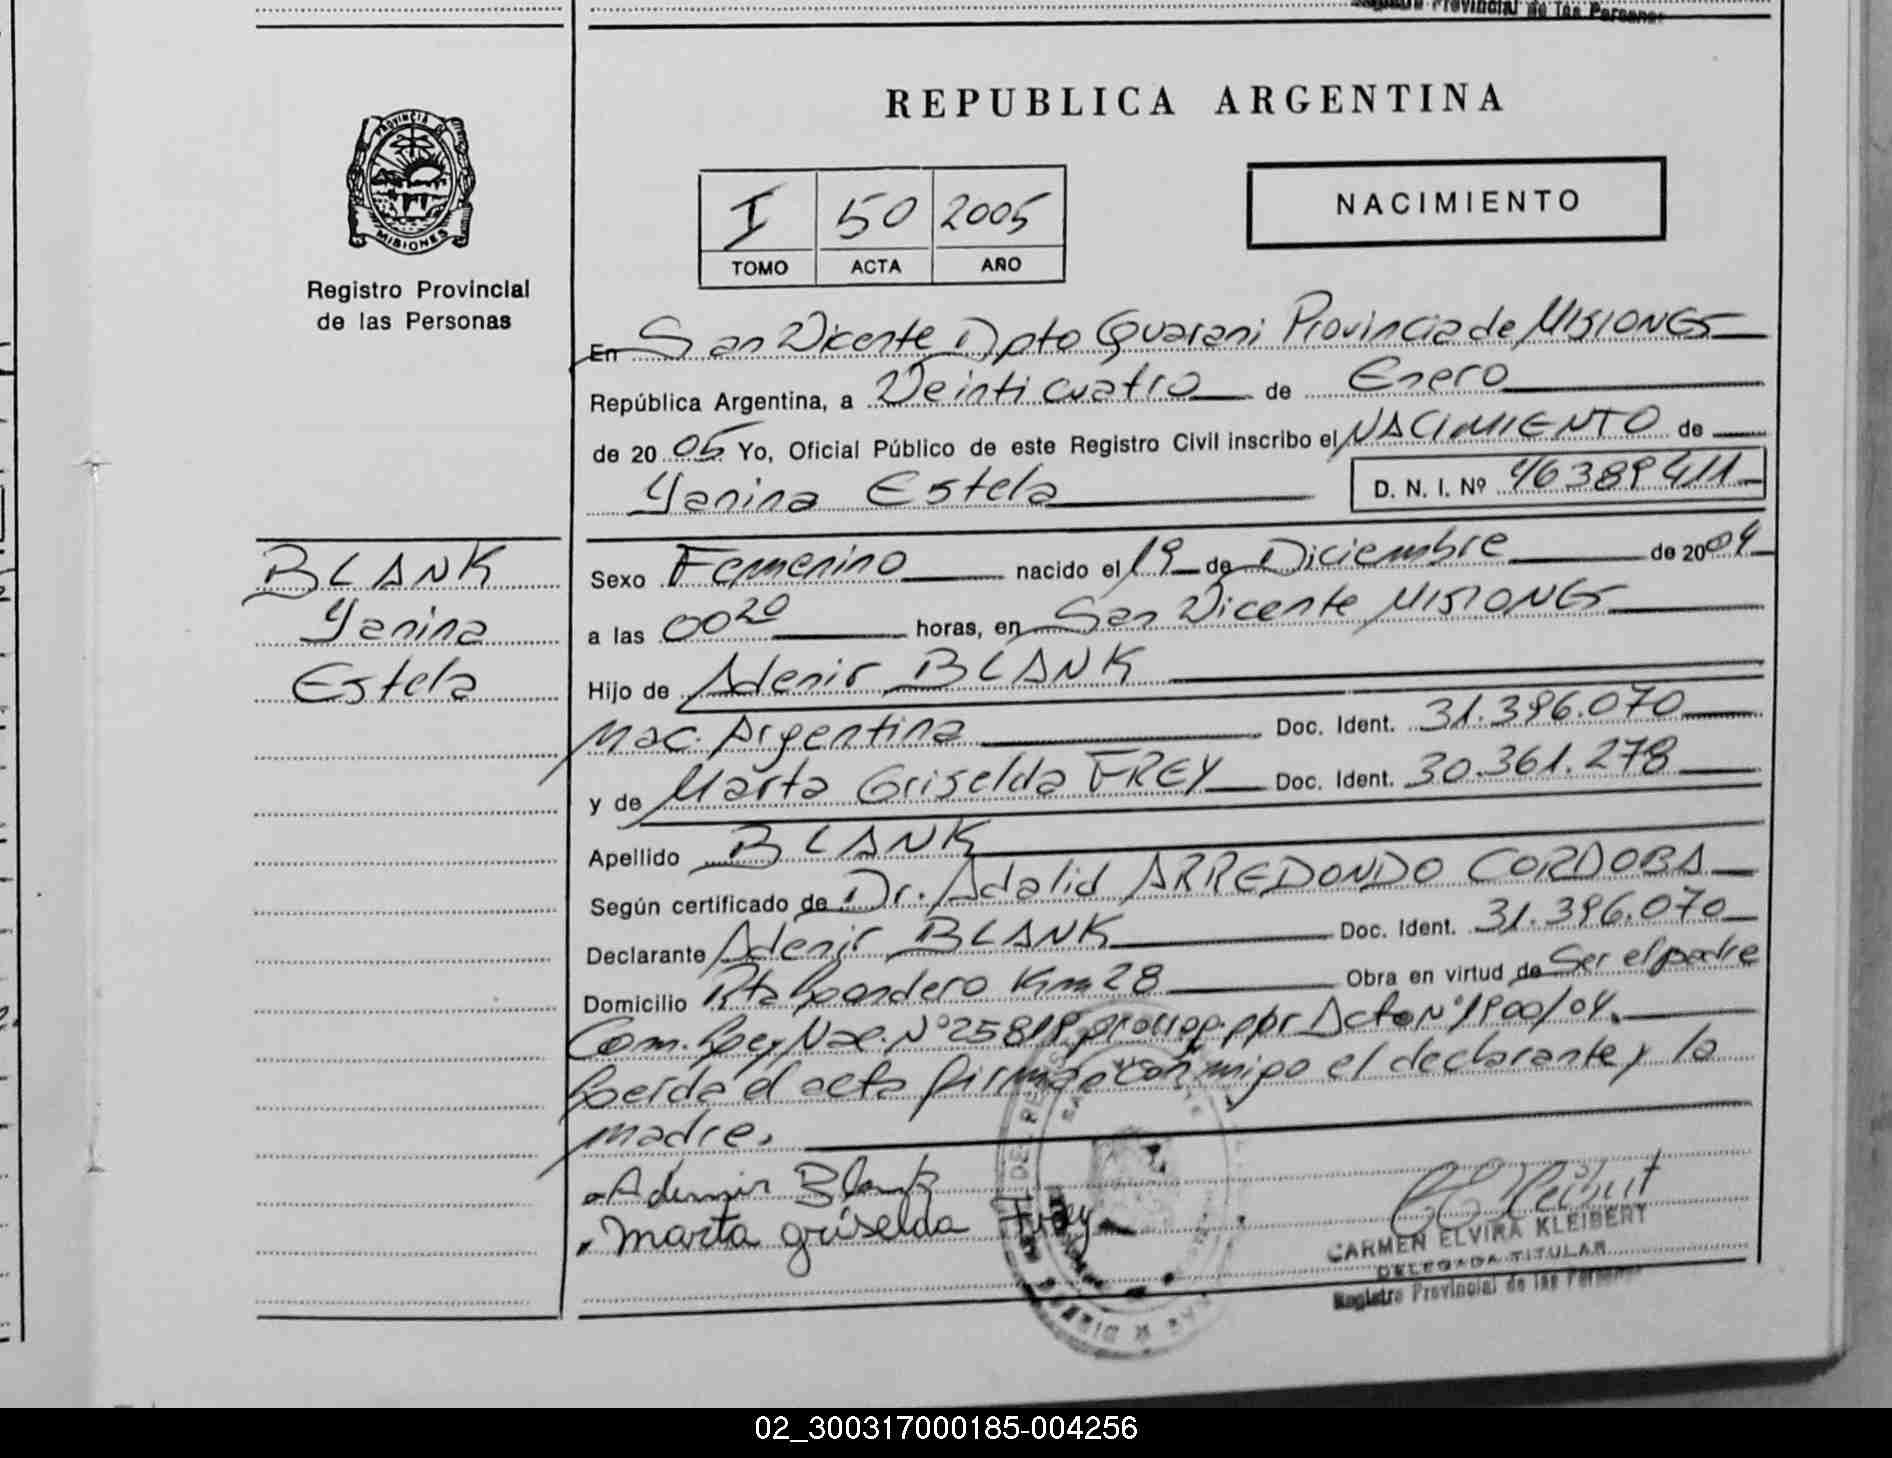 Registro Provincial de las Personas
PROVINCIA DE
MISIONES
Registro Provincial
de las Personas
REPUBLICA ARGENTINA
I 50 2005
TOMO ACTA AÑO
NACIMIENTO
En San Vicente Dpto Guarani Provincia de MISIONES
República Argentina, a Veinticuatro de Enero
de 20 05 Yo, Oficial Público de este Registro Civil inscribo el NACIMIENTO de
Yanina Estela D. N. I. Nº 46389411
BLANK
Yanina
Estela
Sexo Femenino nacido el 19 de Diciembre de 2004
a las 00 20 horas, en San Vicente MISIONES
Hijo de Adenir BLANK
Nac. Argentina Doc. Ident. 31.396.070
y de Marta Griselda FREY Doc. Ident. 30.361.278
Apellido BLANK
Según certificado de Dr. Adalid ARREDONDO CORDOBA
Declarante Adenir BLANK Doc. Ident. 31.396.070
Domicilio Km 28 Obra en virtud de Ser el padre
Com. Ley Nac. Nº 25819 por Acto Nº 1900/04.
Leida el acta firman conmigo el declarante y la
madre.
Ademir Blank
Marta griselda Frey
CARMEN ELVIRA KLEIBERT
DELEGADA TITULAR
Registro Provincial de las Personas
02_300317000185-004256